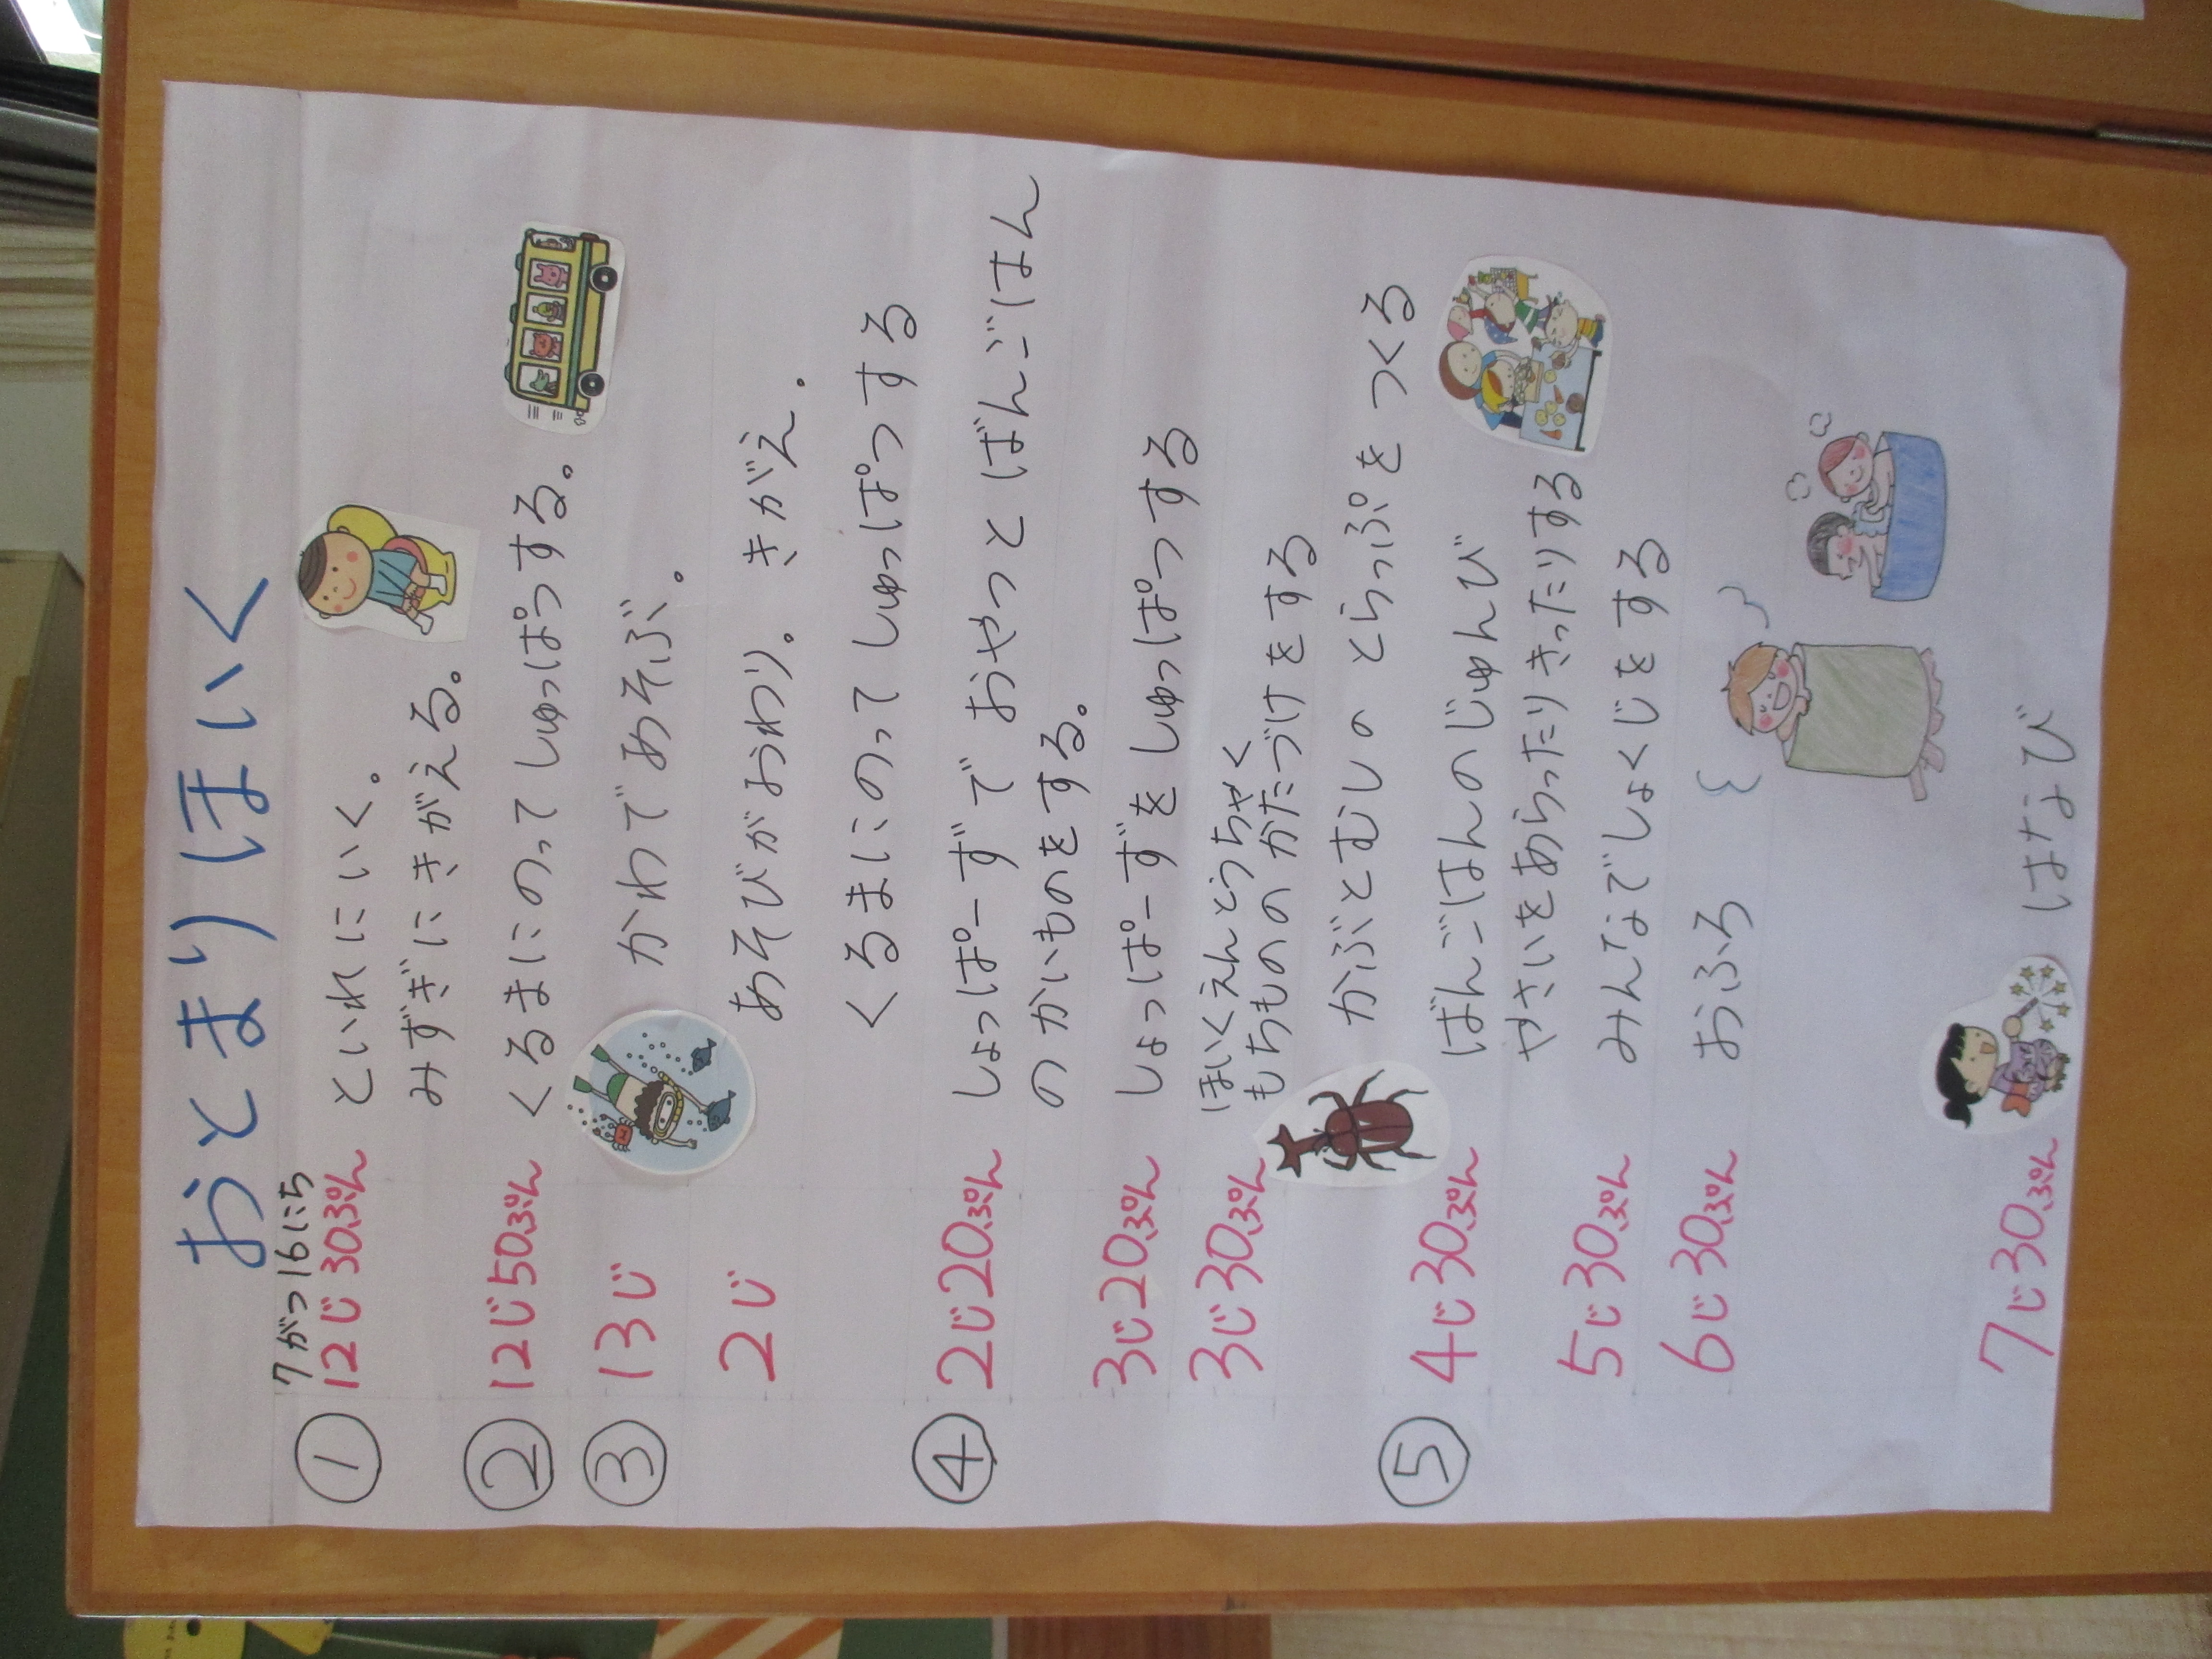 おとまりほいく
7がつ16にち
① 12じ30ぷん といれにいく。
みずぎにきがえる。
② 12じ50ぷん くるまにのって しゅっぱつする。
③ 13じ かわであそぶ。
2じ あそびがおわり。 きがえ。
くるまにのって しゅっぱつする
④ 2じ20ぷん しょっぱーずで おやつと ばんごはん
のかいものをする。
3じ20ぷん しょっぱーずを しゅっぱつする
3じ30ぷん ほいくえんとうちゃく
もちものの かたづけをする
かぶとむしの とらっぷを つくる
⑤ 4じ30ぷん ばんごはんのじゅんび
やさいをあらったりきったりする
5じ30ぷん みんなでしょくじをする
6じ30ぷん おふろ
7じ30ぷん はなび